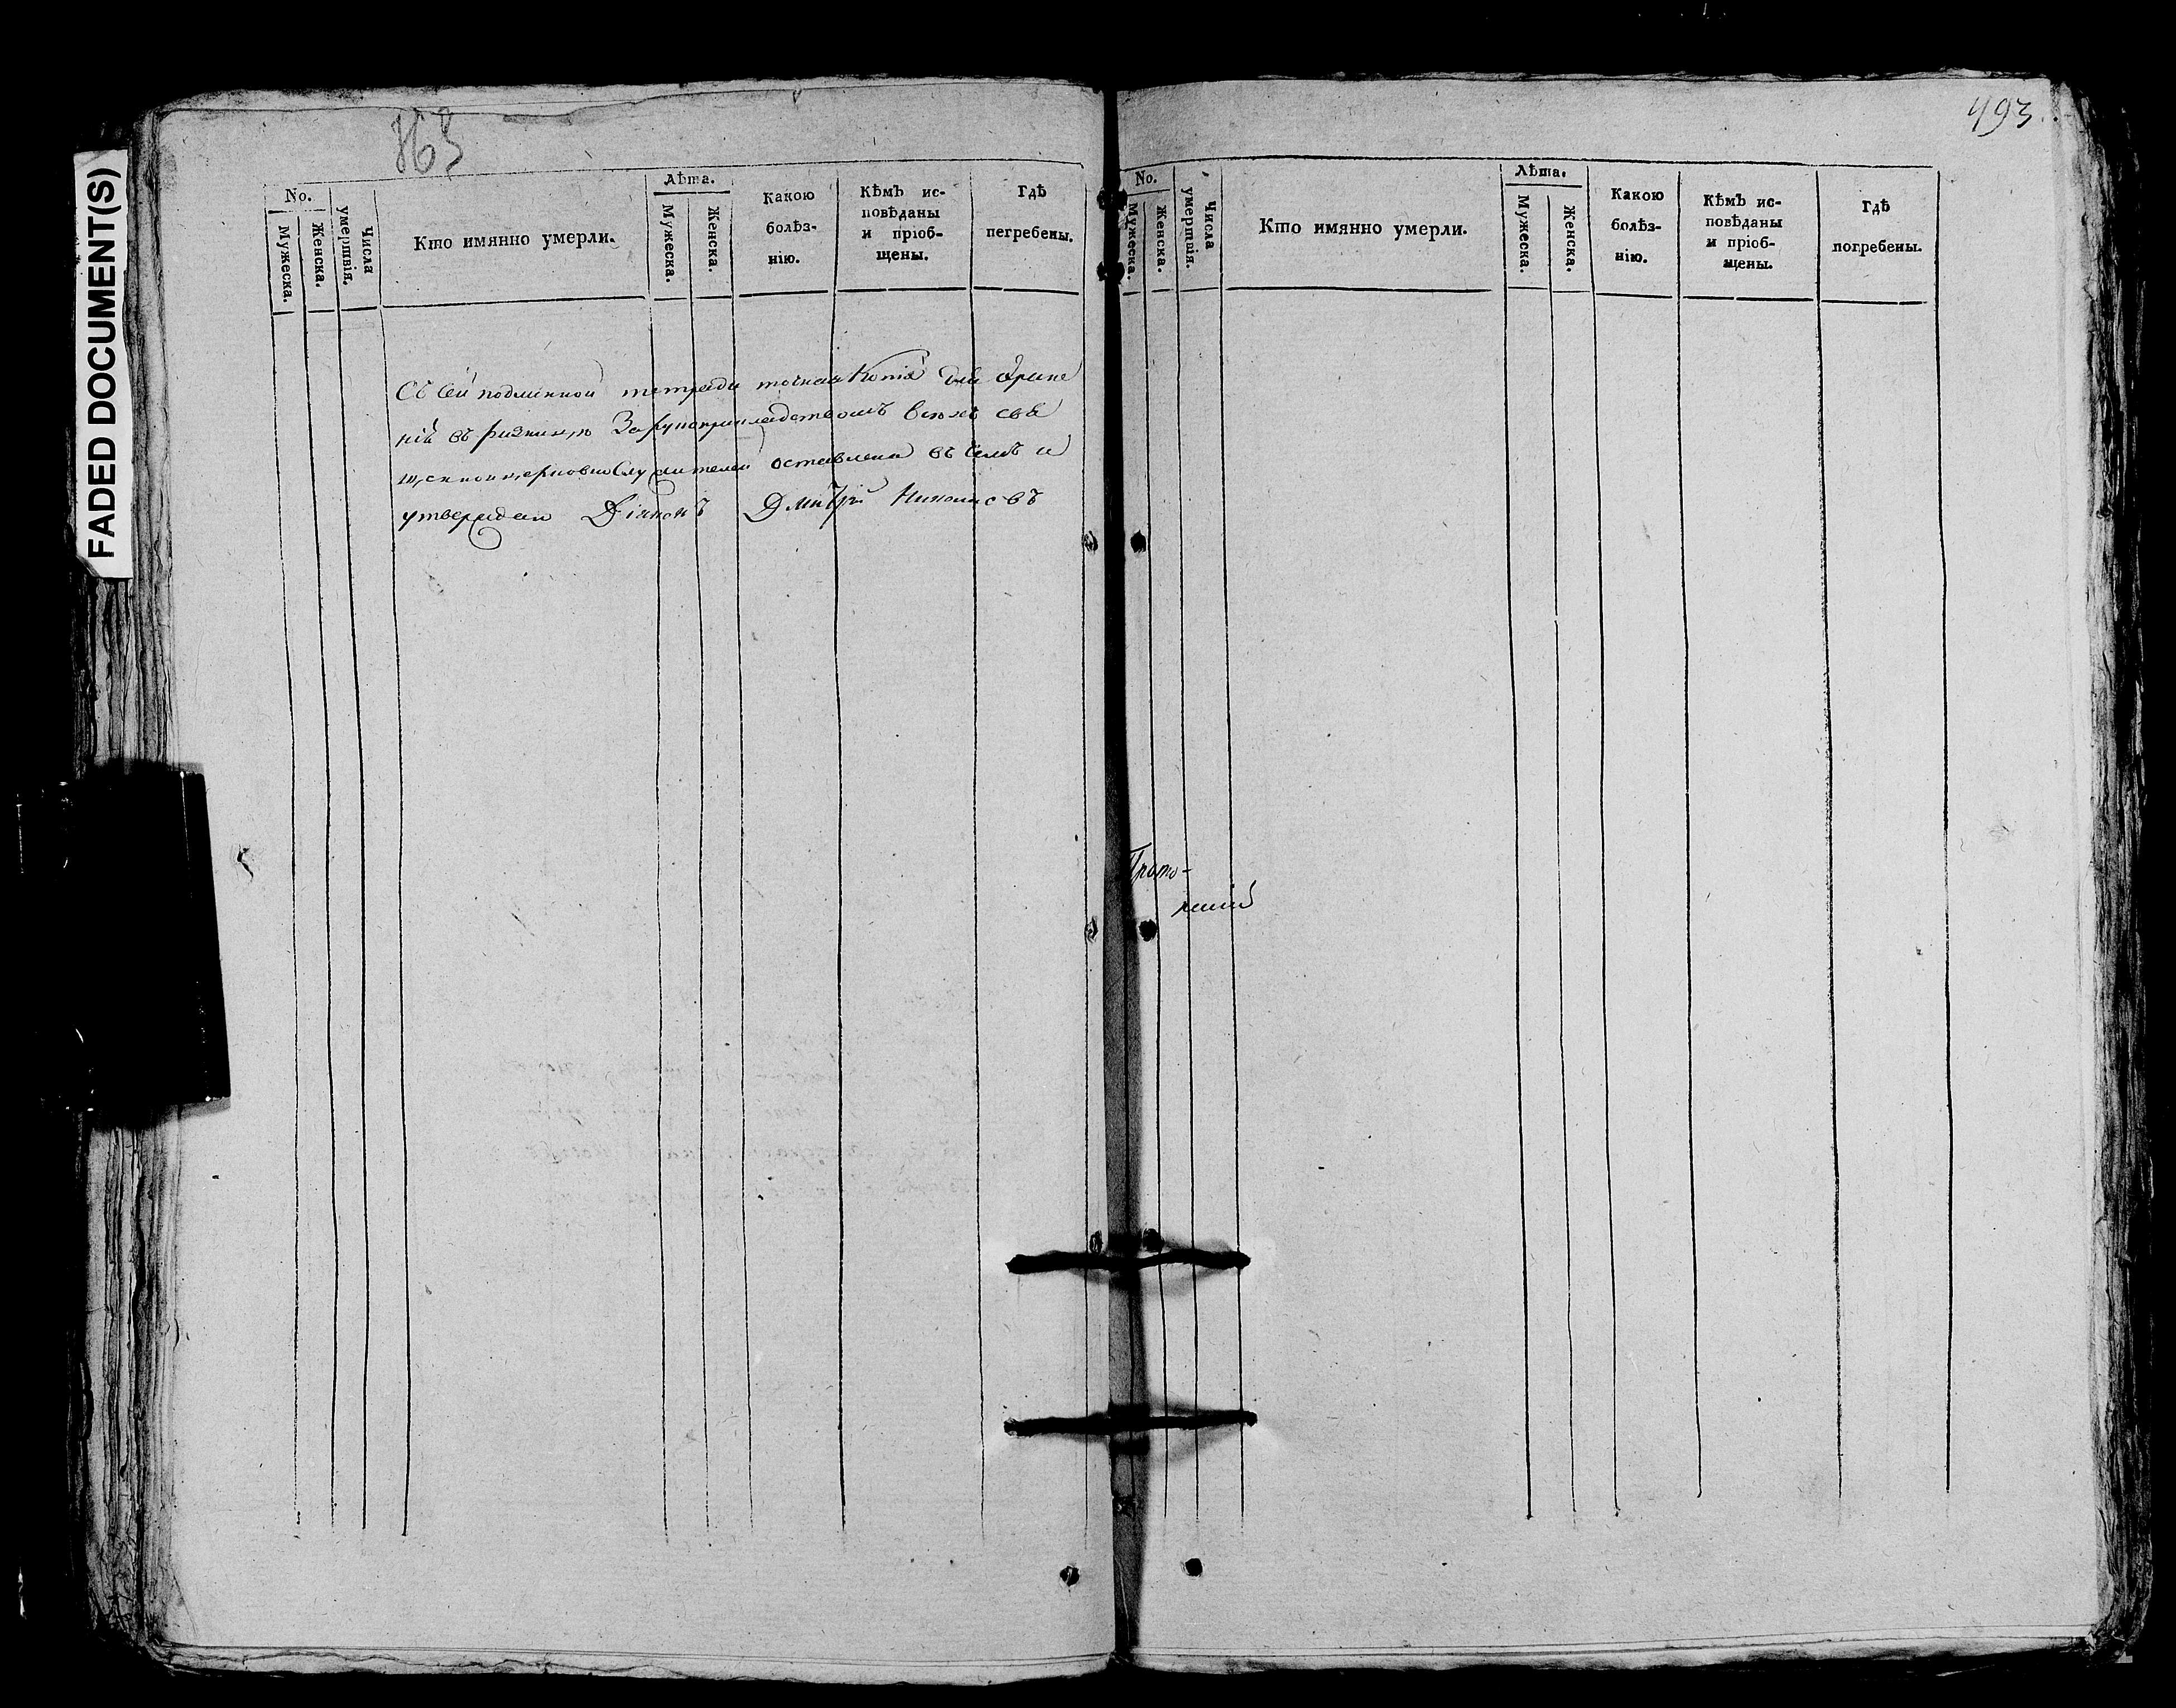 FADED DOCUMENT(S)
863
No.
Мужеска.
Женска.
Числа
умертвія.
Кто имянно умерли.
Лѣта.
Мужеска.
Женска.
Какою
болѣз-
нію.
Кѣмъ ис-
повѣданы
и пріоб-
щены.
Гдѣ
пегребены.
Съ сей подлинной тетради точная Копія для хране
нія въ ризницѣ За рукоприкладствомъ всѣхъ свя
щенноцерковнослужителей оставлена въ чемъ и
утверждаю Діяконъ Дмитрій
493
No.
Мужеска.
Женска.
Числа
умертвія.
Кто имянно умерли.
Лѣта.
Мужеска.
Женска.
Какою
болѣз-
нію.
Кѣмъ ис-
повѣданы
и пріоб-
щены.
Гдѣ
погребены.